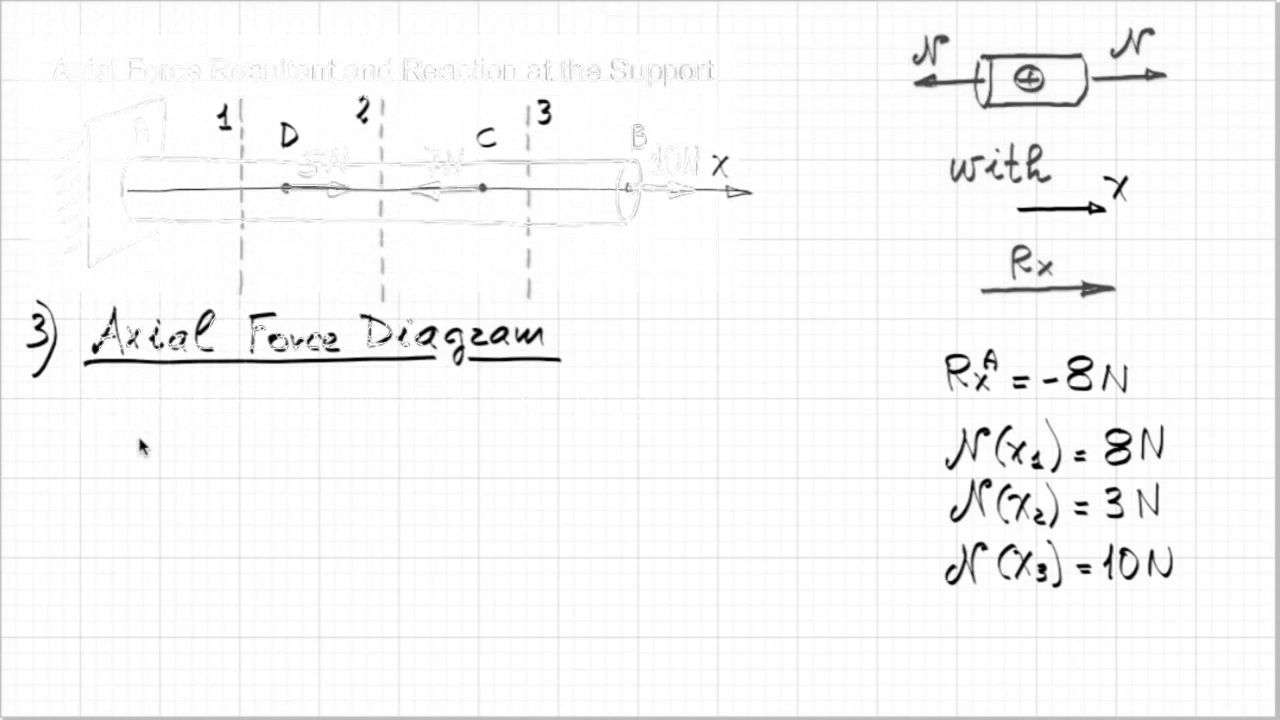 Axial Force Resultant and Reaction at the Support
1 2 3
A D C B
5N 7N 10N x
3) Axial Force Diagram
N N
+
with
x
Rx
RxA = -8N
N(x1) = 8N
N(x2) = 3N
N(x3) = 10N